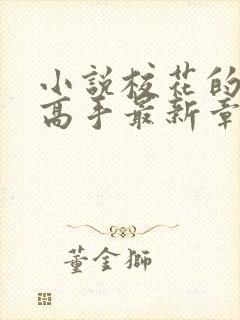 小说校花的
高手最新章
董金狮